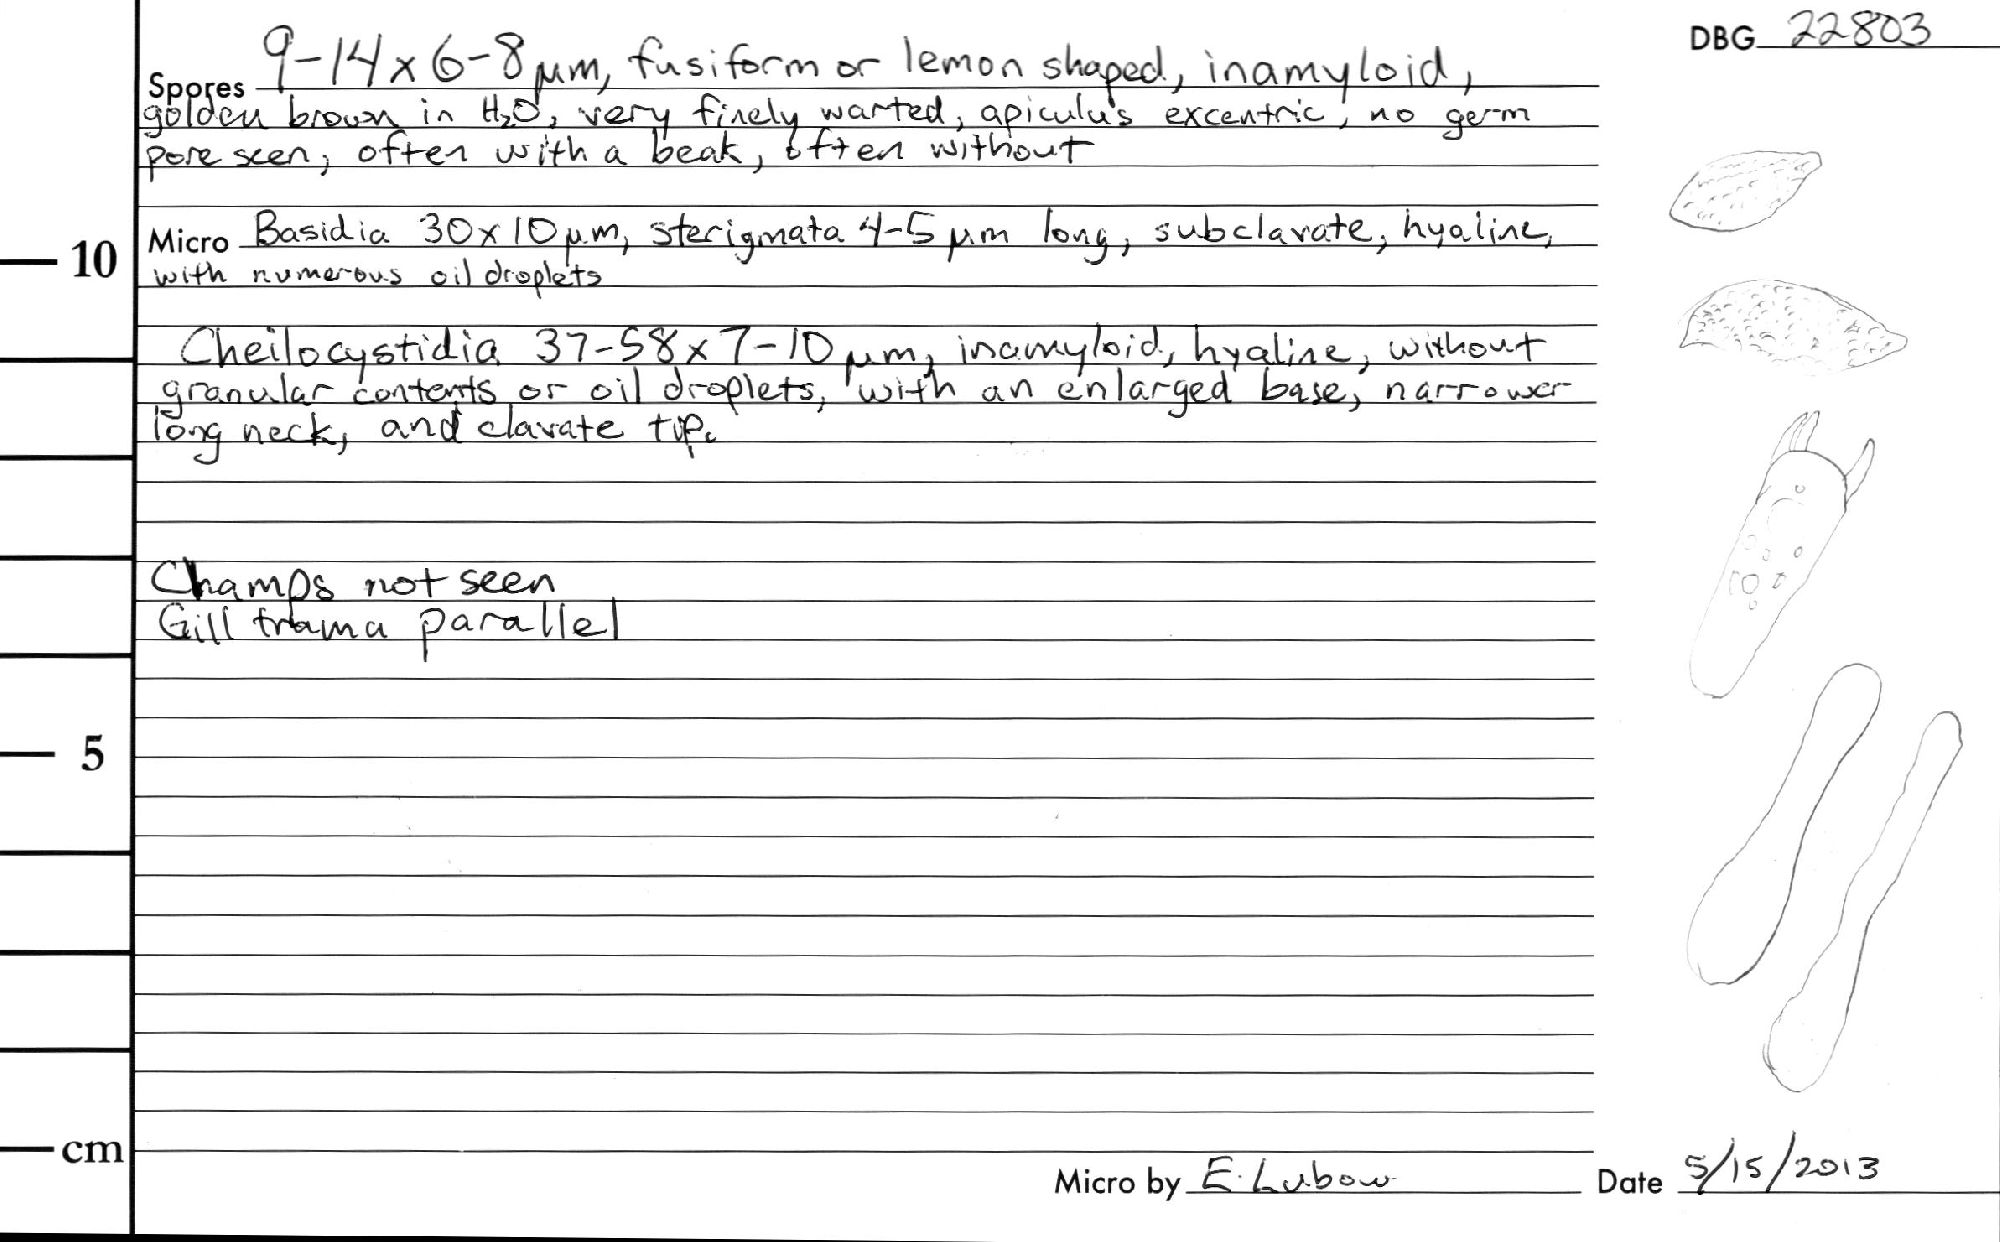 DBG 22803
Spores 9-14 x 6-8 µm, fusiform or lemon shaped, inamyloid,
golden brown in H₂O, very finely warted, apiculus excentric, no germ
pore seen, often with a beak, often without
Micro Basidia 30x10 µm, sterigmata 4-5 µm long, subclavate, hyaline,
with numerous oil droplets
10
Cheilocystidia 37-58 x 7-10 µm, inamyloid, hyaline, without
granular contents or oil droplets, with an enlarged base, narrower
long neck, and clavate tip.
Clamps not seen
Gill trama parallel
5
cm
Micro by E. Lubow Date 5/15/2013